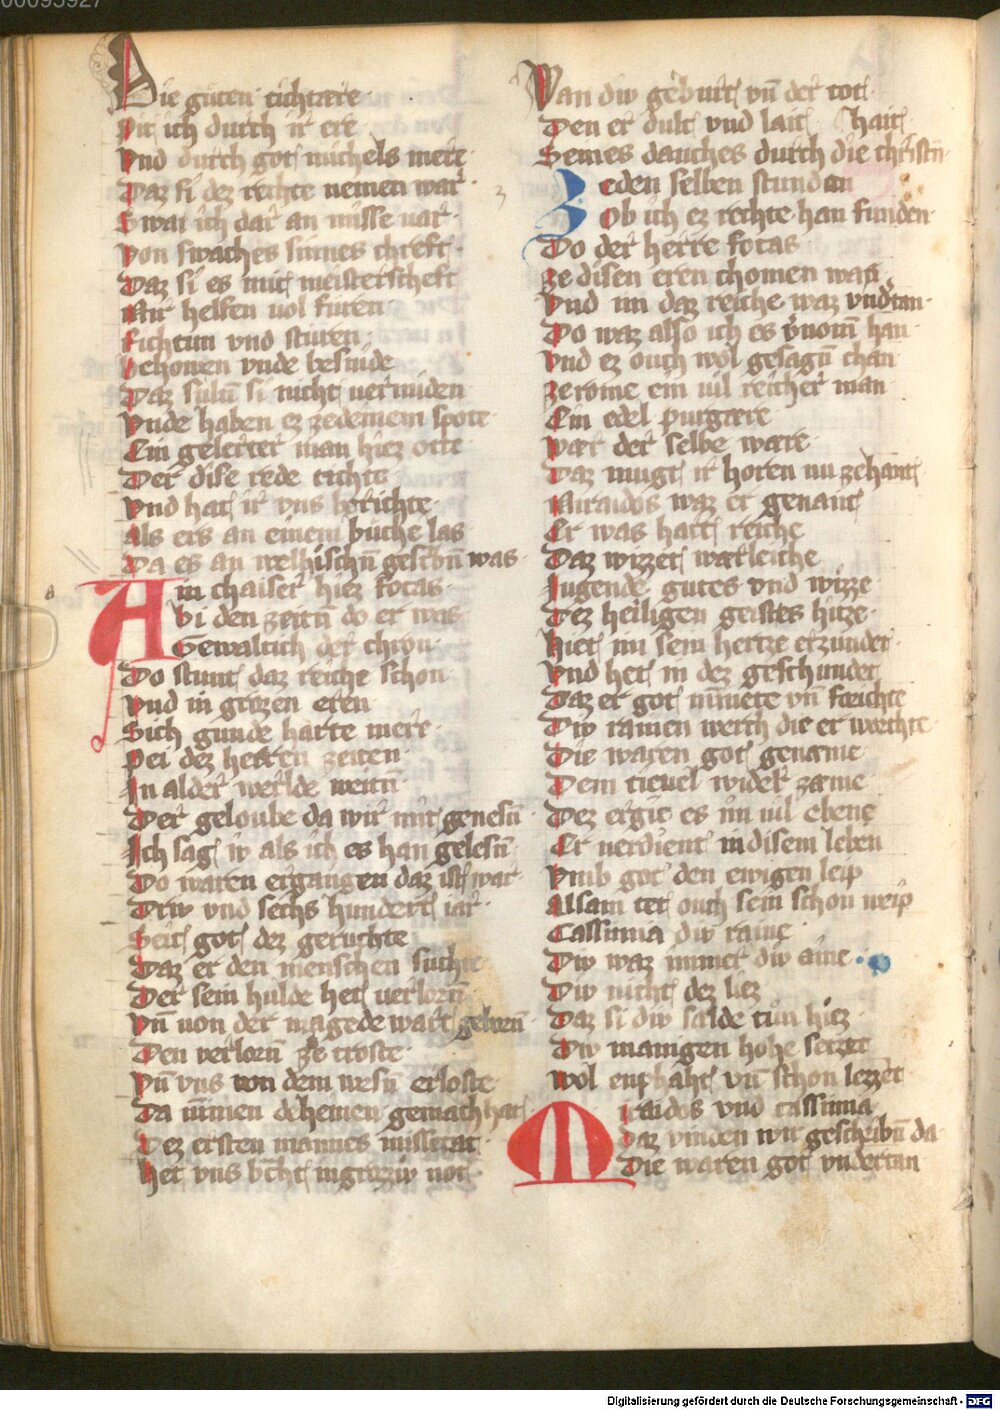 00095927
Die guten tichtære
Pit ich durch ir ere
Vnd durch got michels mere
Daz si dez rechte nemen war
Swar ich dar an misse uar
Von swaches sinnes chreft
Daz si es mit meisterscheft
Mir helfen uol furen
Tichtun vnd sturen
vnde besnide
Daz sulñ si nicht uermiden
Vnde haben ez zedemem spote
Ein gelerter man hiez otte
Der dise rede tichte
Vnd hat ir vns berichte
Als ers an einem buche las
Da es an welhischñ geschbñ was
Ain chaiser hiez focas
bi den zeitñ do er was
Gewaltich der chron
Do stunt daz reiche schon
Vnd in grozen eren
Sich gunde harte mere
Pei dez herren zeiten
In alder werlde weitñ
Der geloube da wir mit genesñ
Ich sag iv als ich es han gelesñ
Do waren ergangen daz ist war
Driv vnd sechs hundert iar
Seit got dez geruchte
Daz er den menschen suchte
Der sein hulde het uerlorñ
Vñ von der magede wart geborñ
Den verlorñ ze troste
Vñ vns von dem wesñ erloste
Da nimen deheinen gemach hat
Dez ersten mannes missetat
Het vns bcht in groziv not
Wan div geburt vñ der tot
Den er dult vnd lait hait
Seines dauches durch die christñ
Zeden selben stundan
Ob ich ez rechte han funden
Do der herre focas
Ze disen eren chomen was
Vnd im daz reiche waz vndtan
Do waz also ich es vnomñ han
Vnd ez ouch wol gesagñ chan
Ze rome ein uil reicher man
Ein edel purgære
Wær der selbe were
Daz mugt ir horen nu zehant
Miraidos waz er genant
Er was hart reiche
Daz wizzet wærleiche
Jugende gutes vnd wizze
Dez heiligen geistes hitze
Het im sein hertze erzundet
Vnd het in dez geschundet
Daz er got minnete vñ forichte
Div rainen werch die er worchte
Die waren got genæme
Dem tieuel wider zæme
Dez ergie es im uil ebene
Er uerdient in disem leben
Vmb got den ewigen leip
Alsam tet ouch sein schon weip
Cassinia div raine
Div waz immer div aine
Div nicht dez liez
Daz si div sælde tun hiez
Div manigen hohe setzet
Wol enphaht vñ schon letzet
Miraidos vnd cassinia
Daz vinden wir geschribñ da
Die waren got vndertan
Digitalisierung gefördert durch die Deutsche Forschungsgemeinschaft - DFG